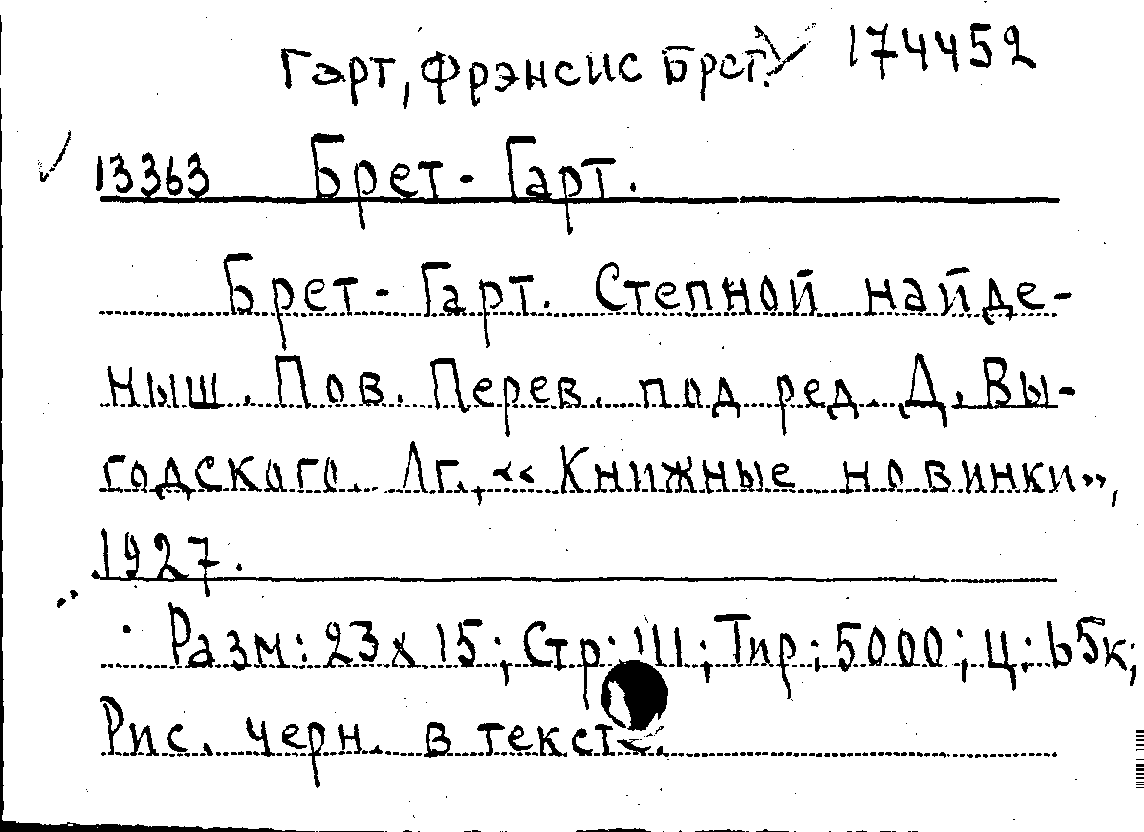 Гарт, Фрэнсис Брет. 174452
13363 Брет-Гарт.
Брет-Гарт. Степной найде-
ныш. Пов. Перев. под ред. Д. Вы-
годского. Лг., «Книжные новинки»,
1927.
Разм: 23х15; Стр: 111; Тир: 5000; Ц: 65к;
Рис. черн. в тексте.